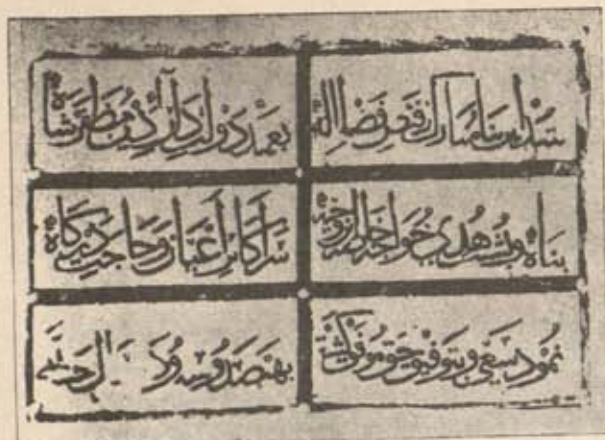 شد این بنا مبارک ز فیض فضل اله
بعهد دولت دارای دین مظفر شاه
پناه و پشت هدی خواجه
سر اکابر اعیان و حاجب درگاه
نمود سعی و بتوفیق حق موفق گشت
بهفتصد و سال